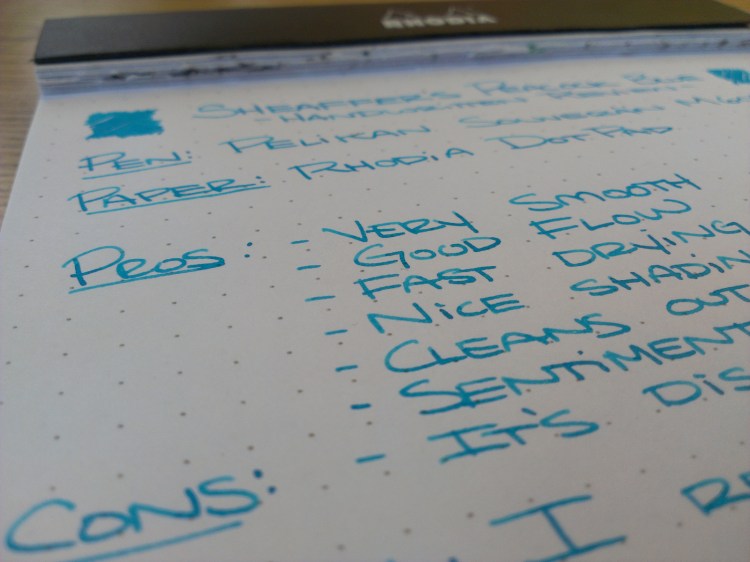 RHODIA
SHEAFFER'S PEACOCK BLUE
- HANDWRITTEN REVIEW -
PEN: PELIKAN SOUVERÄN
PAPER: RHODIA DOTPAD
PROS: - VERY SMOOTH
- GOOD FLOW
- FAST DRYING
- NICE SHADIN
- CLEANS OUT
- SENTIMENT
- IT'S DIS
CONS:
I